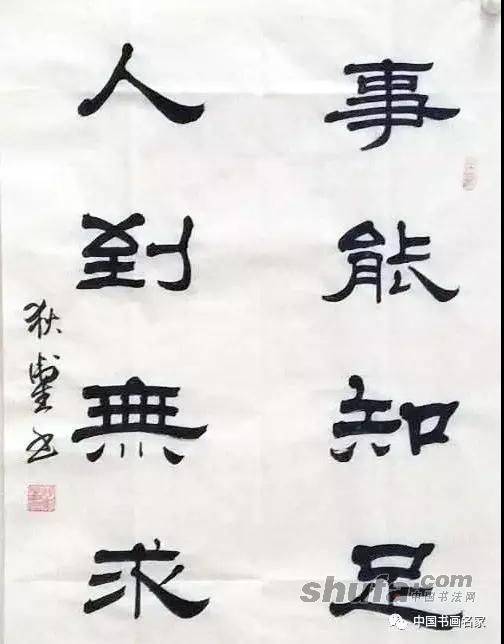 事能知足
人到無求
shufa.com
中国书法网
中国书画名家